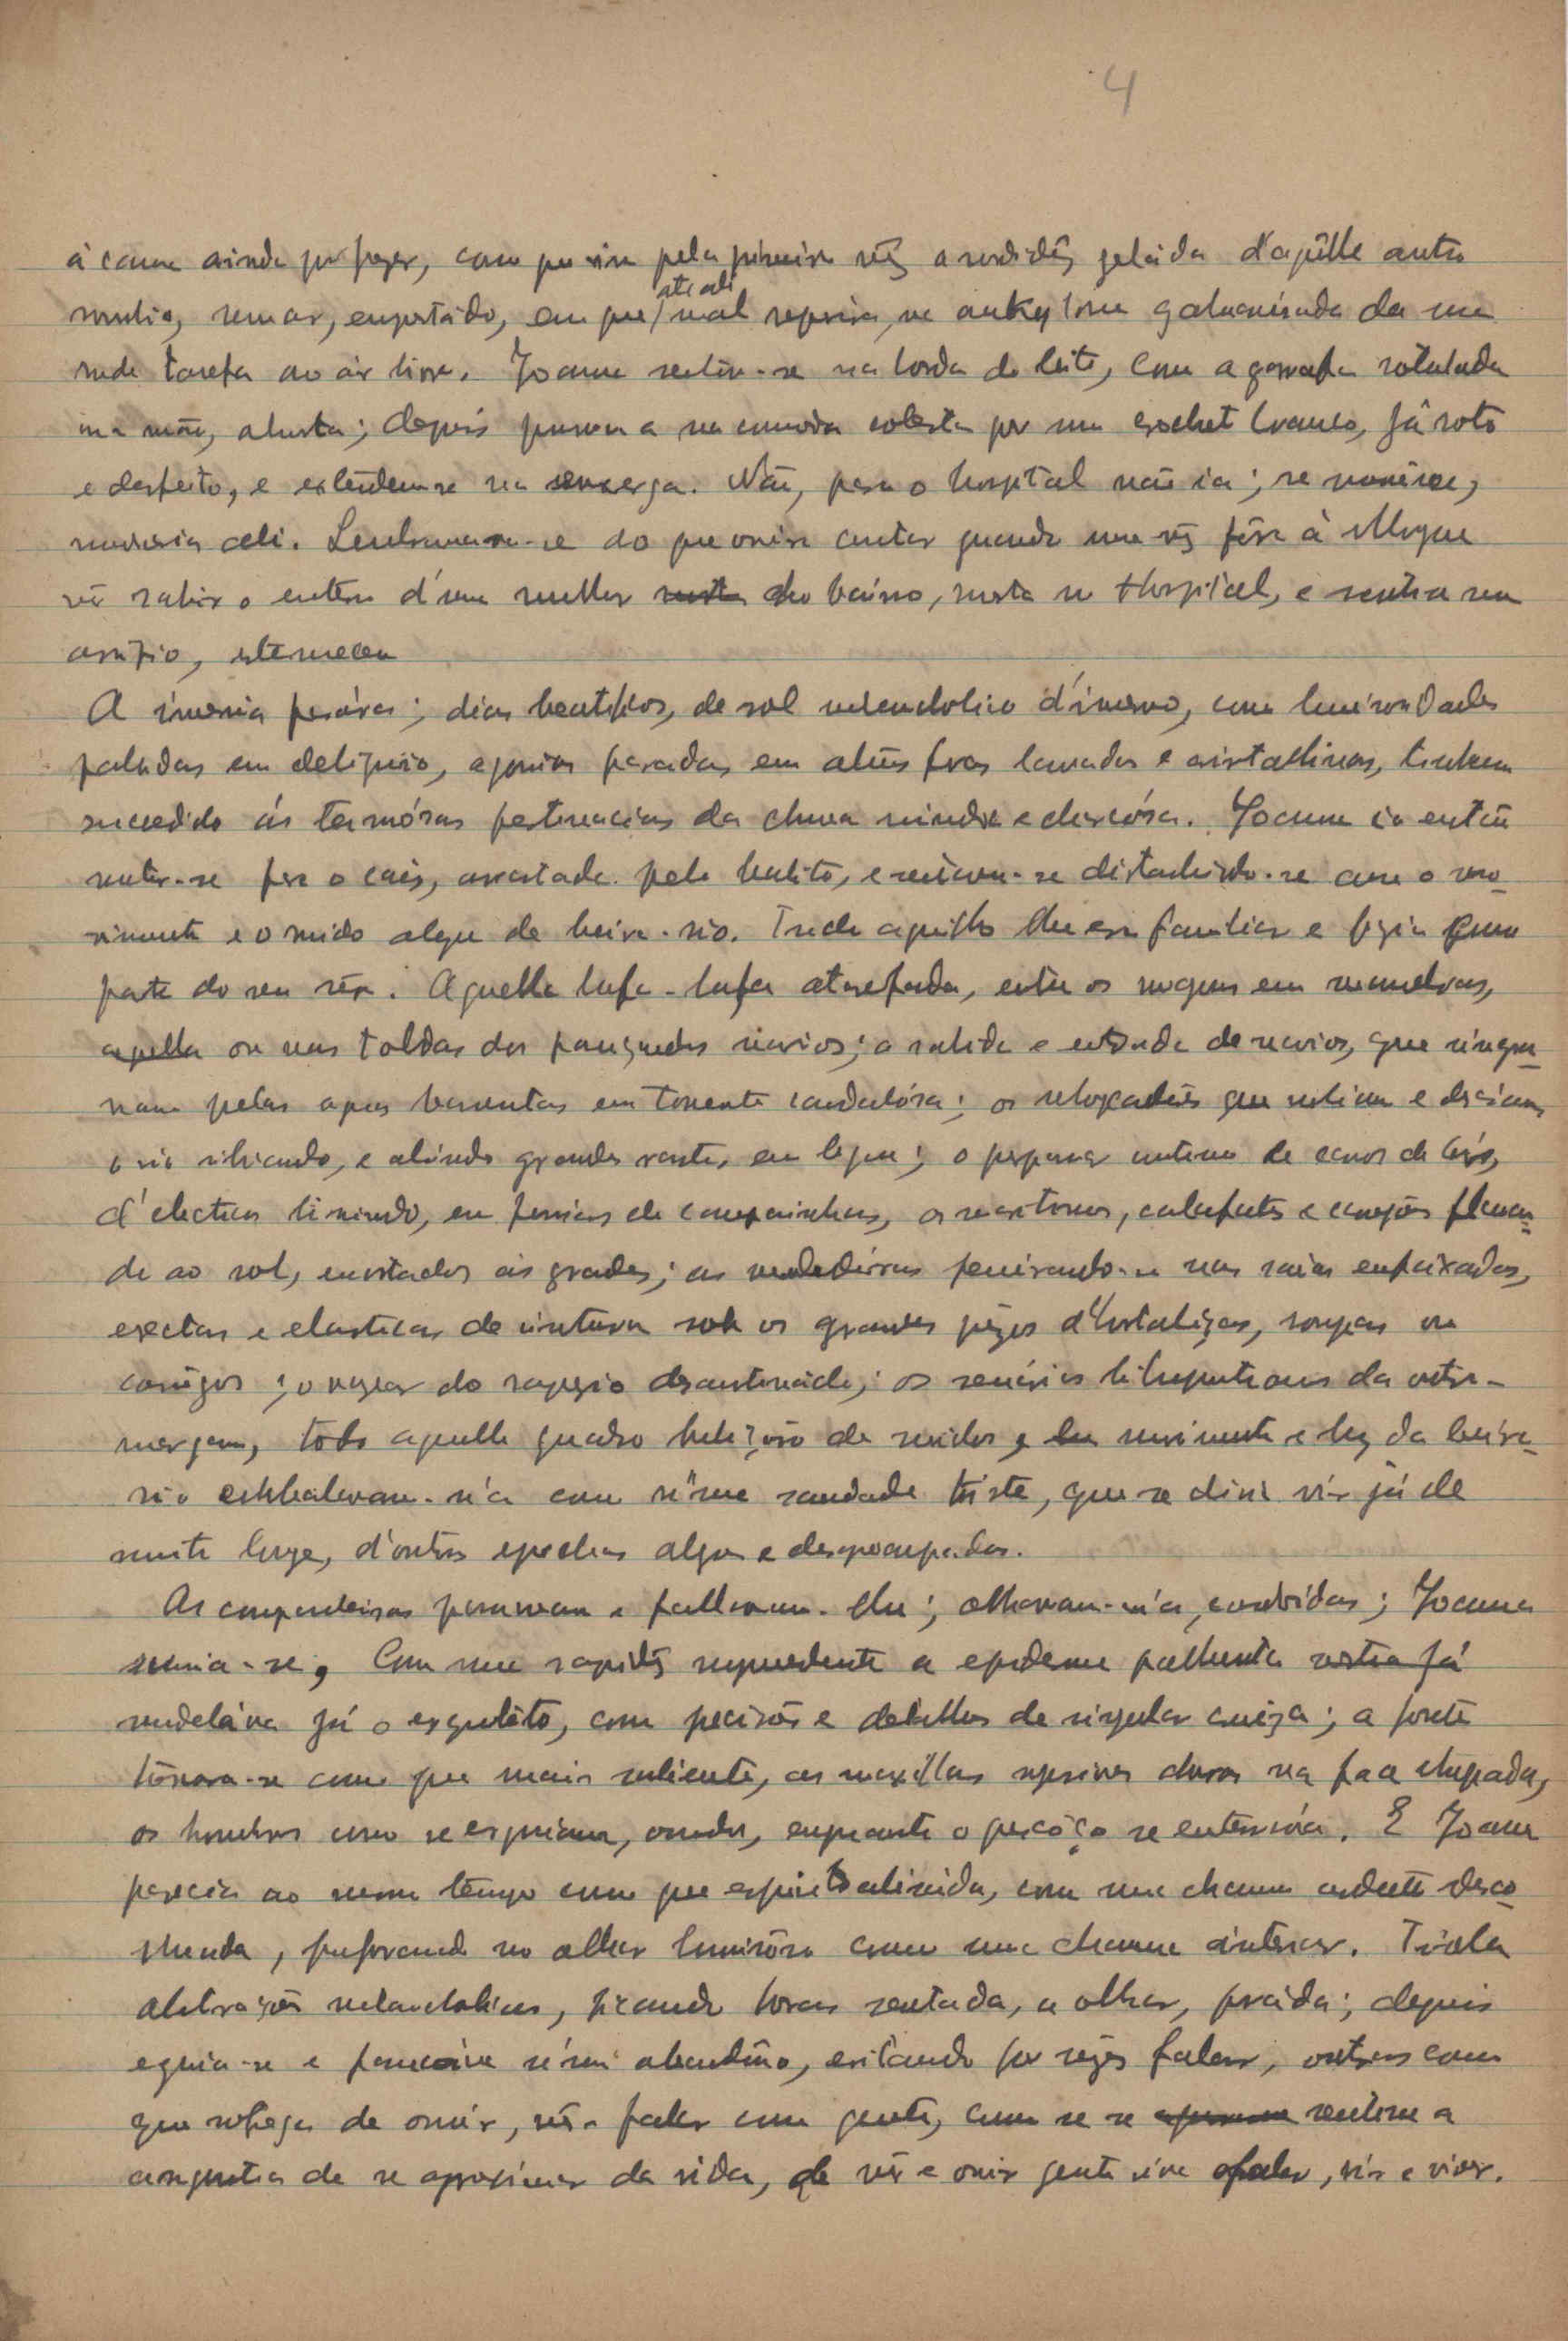 4
á cama ainda por fazer, como que vira pela primeira vêz a sordidêz gelida d'aquêlle antro
sombrio, sem ar, empestado, em que até ali mal reparára, na ankylose galvanisada da sua
rude tarefa ao ár livre. Joanna sentou-se na borda do leito, com a garrafa rotulada
na mão, aberta; depois pousou-a na comoda coberta por um crochet branco, já roto
e desfeito, e estendeu-se na enxerga. Não, para o hospital não ia; se morrêsse,
morreria ali. Lembrava-se do que ouvira contar quando uma vêz fôra á Morgue
vêr sahir o enterro d'uma mulher do bairro, morta no Hospital, e sentiu um
arrepio, estremeceu
A invernia passára; dias beatificos, de sol melancholico d'inverno, com luminosidades
pallidas em deliquio, agonias paradas em alturas lavadas e cristallinas, tinham
succedido ás teimósas pertinacias da chuva miudas e desciosa. Joanna ia então
sentar-se para o caes, arrastada pelo habito, e ficava-se distrahindo-se com o mo-
vimento e o ruido alegre da beira-rio. Tudo aquillo lhe era familiar e fazia como
parte do seu sêr. Aquella lufa-lufa atarefada, entre os vagons em manobras,
ou nas toldas dos paquetes; a sahida e entrada de navios, que singra-
vam pelas aguas barrentas em torrente caudalósa; os rebocadores que subiam e desciam
o rio silvando, e abrindo grandes; o perpassar continuo de carros de bois,
d'electricos tinindo, em furias de campainhas, os maritimos, calafates e
do ao sol, encostados ás grades; as vendedeiras peneirando-se nas saias enfaixadas,
erectas e elasticas de cintura sob os grandes pêzos d'hortaliças, roupas ou
; o vozear do rapazio desenfreado; os scenários liliputianos da outra
margem, todo aquelle quadro buliçoso de ruidos, movimento e luz da beira-
rio embalavam-n'a com n'uma saudade triste, que se diria vir já de
muito longe, d'outras epochas alegres e despreocupadas.
As companheiras paravam e fallavam-lhe; olhavam-n'a, condoidas; Joanna
sumia-se, Com uma rapidêz surprehendente a epiderme já
modeláva já o esqueleto, com precisões e detalhes de singular crueza; a fronte
tornara-se como que mais saliente, as maxillas duras na face chupada,
os hombros como se erguiam, ossudos, emquanto o pescôço se enterrára. E Joanna
parecia ao mesmo têmpo como que espiritualisada, com uma chama ardente desco-
nhecida, perfurando no olhar luminôso como uma chamma interior. Tinha
abstracções melancholicas, ficando horas sentada, a olhar, parada; depois
erguia-se e n'um abandôno, evitando por vêzes falar, outras com
que sofrega de ouvir, vêr e falar com gente, como se se sentisse a
angustia de se aproximar da vida, de vêr e ouvir gente viva falar, rir e viver.